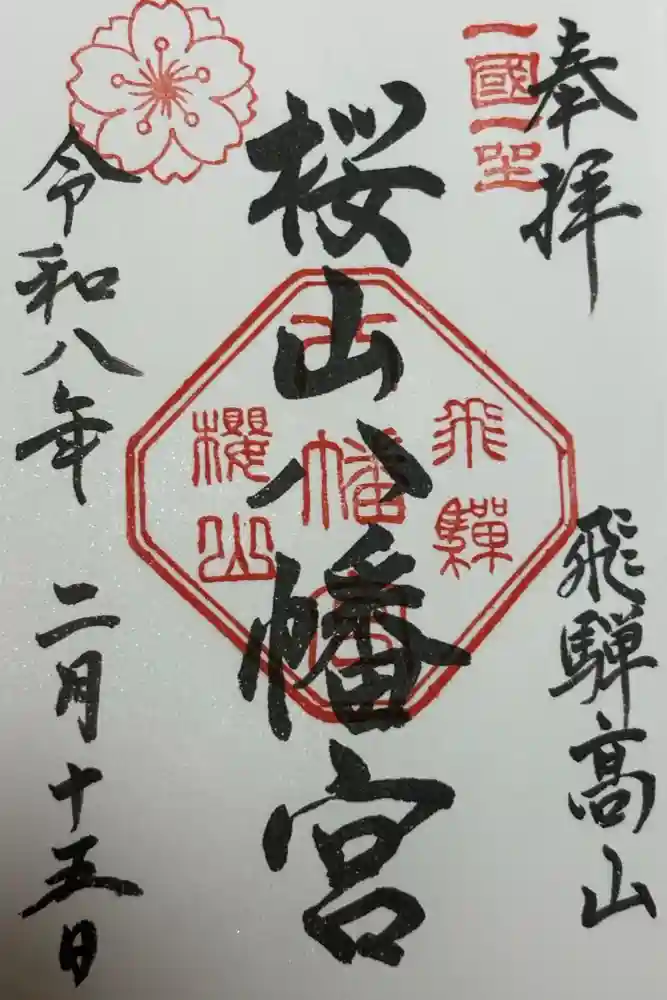 奉拝
一國一社
飛騨高山
桜山八幡宮
飛驒
八幡宮
櫻山
令和八年 二月十五日